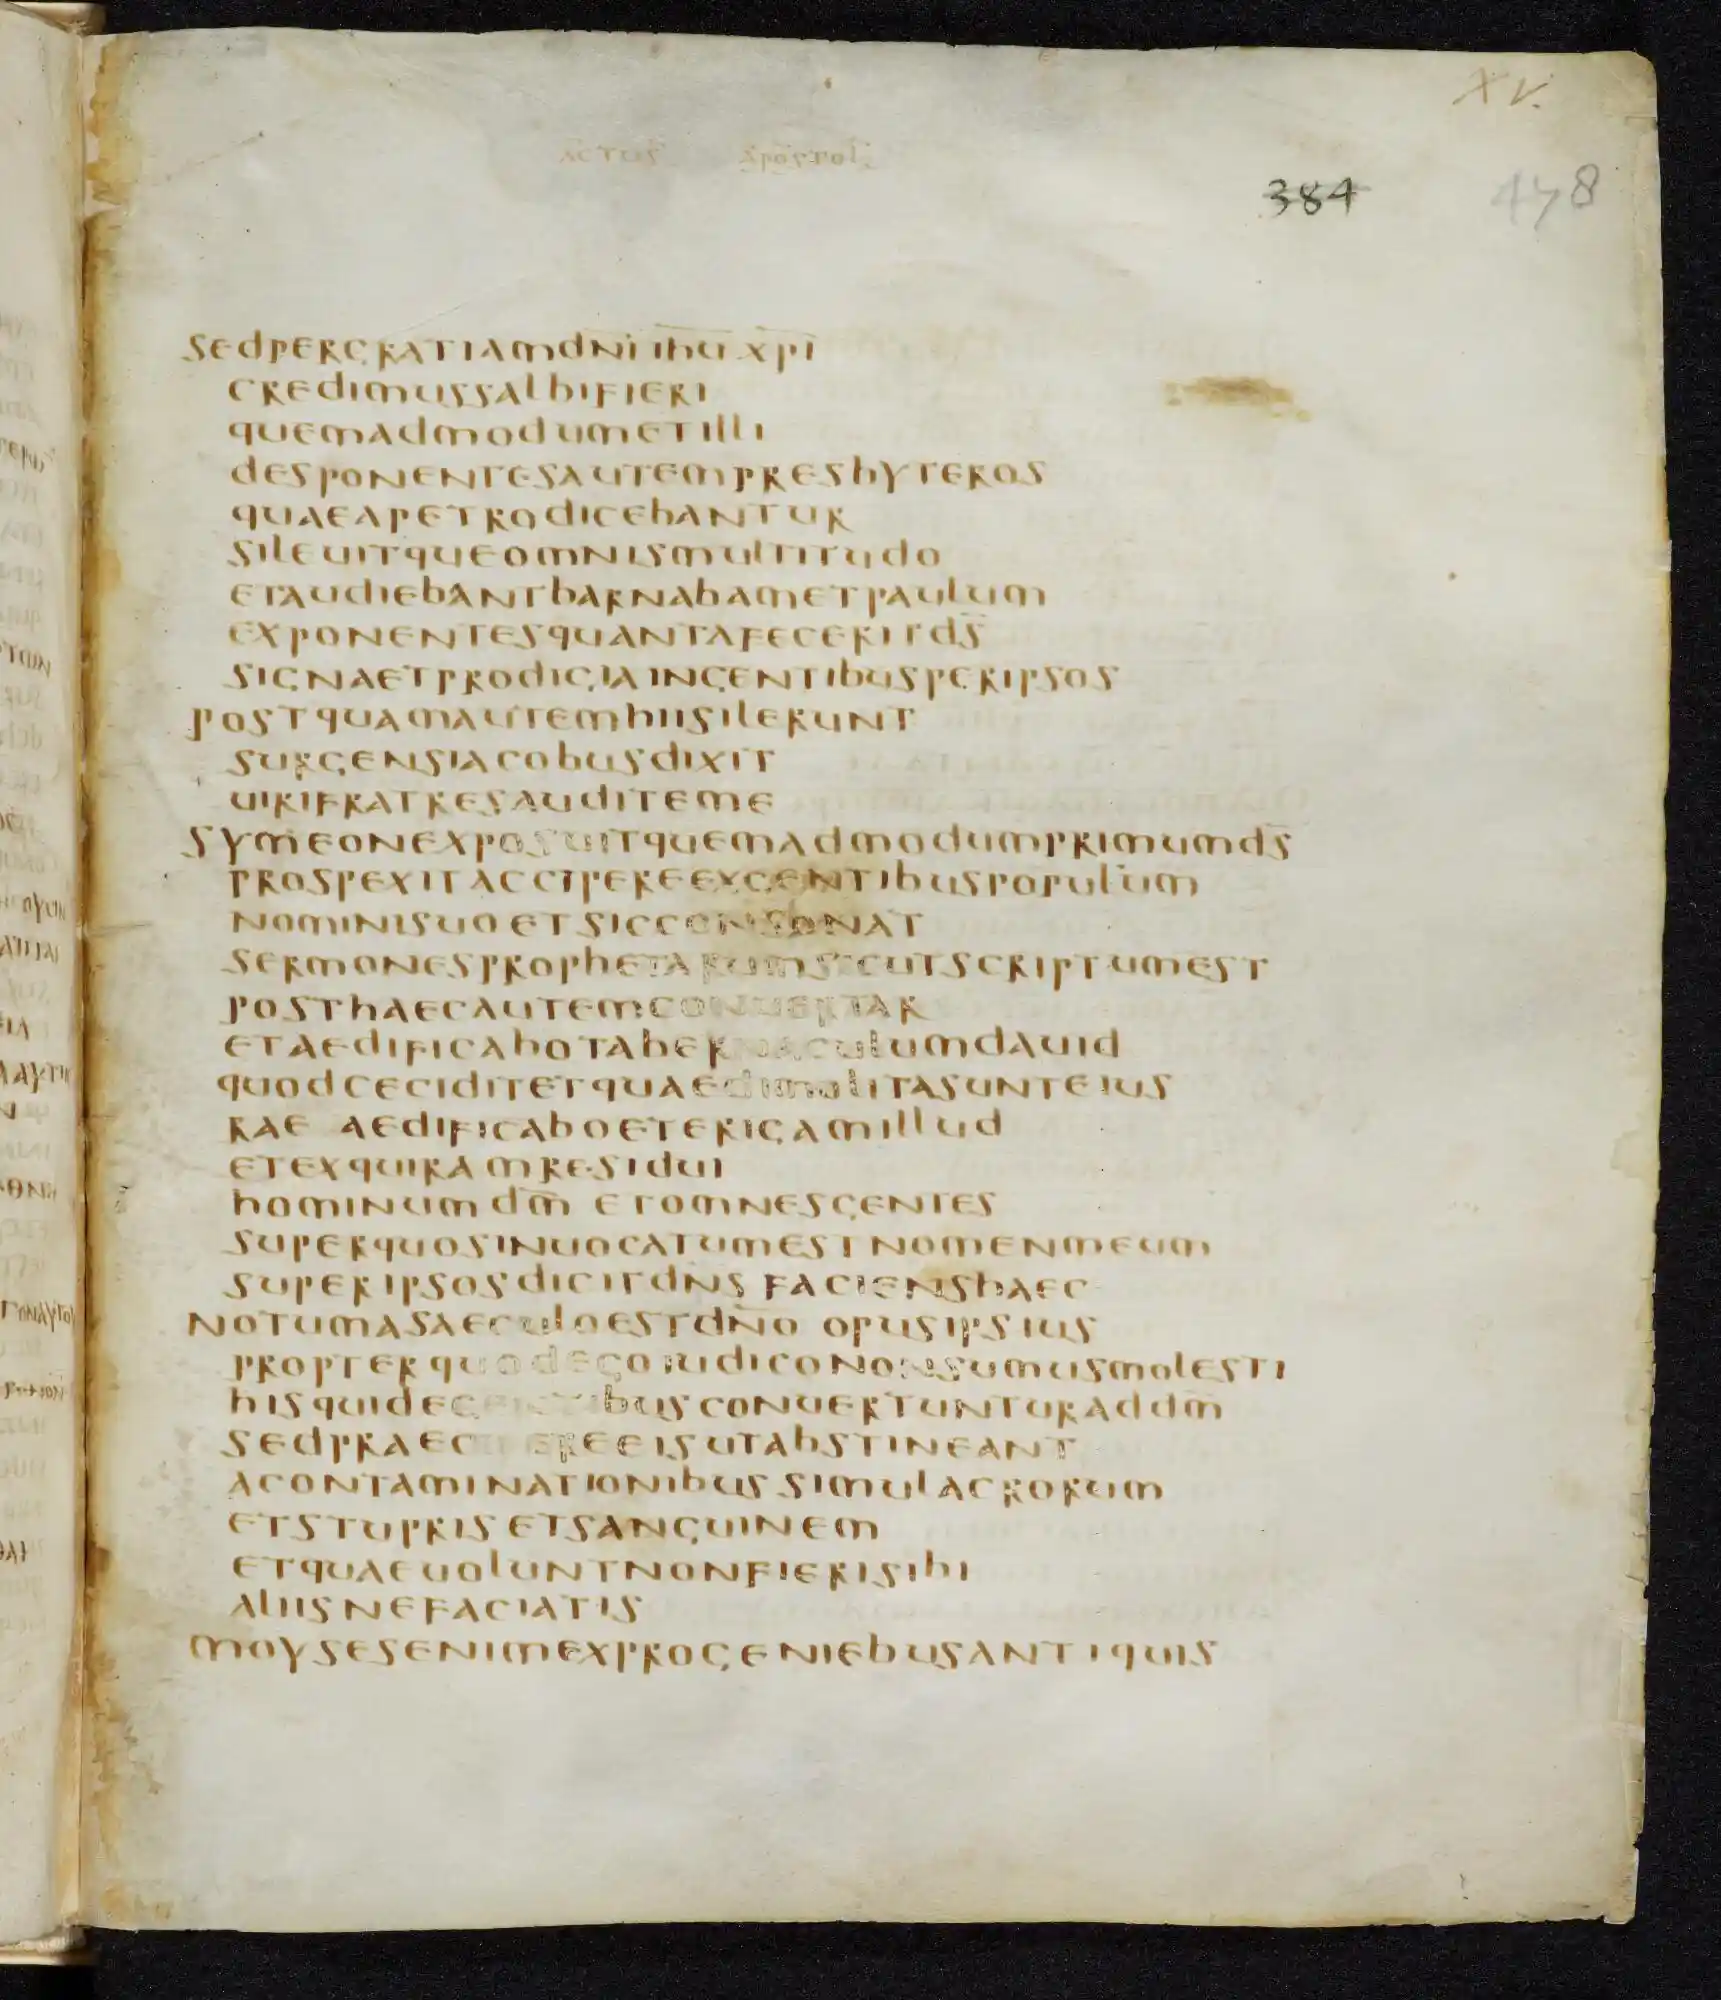 XV.
ACTUS APOSTOL
384 478
SEDPERGRATIAMDN̅I IH̅U XP̅I
CREDIMUSSALBIFIERI
QUEMADMODUMETILLI
DESPONENTESAUTEMPRESBYTEROS
QUAEAPETRODICEBANTUR
SILEUITQUEOMNISMULTITUDO
ETAUDIEBANTBARNABAMETPAULUM
EXPONENTESQUANTAFECERITDS̅
SIGNAETPRODIGIAINGENTIBUSPERIPSOS
POSTQUAMAUTEMHIISILERUNT
SURGENSIACOBUSDIXIT
UIRIFRATRESAUDITEME
SYMEONEXPOSUITQUEMADMODUMPRIMUMDS̅
PROSPEXITACCIPEREEXGENTIBUSPOPULUM
NOMINISUOETSICCONSONAT
SERMONESPROPHETARUMSICUTSCRIPTUMEST
POSTHAECAUTEMCONUERTAR
ETAEDIFICABOTABERNACULUMDAUID
QUODCECIDITETQUAEDIMOLITASUNTEIUS
RAE AEDIFICABOETERIGAMILLUD
ETEXQUIRAMRESIDUI
HOMINUMDM̅ ETOMNESGENTES
SUPERQUOSINUOCATUMESTNOMENMEUM
SUPERIPSOSDICITDN̅S FACIENSHAEC
NOTUMASAECULOESTDN̅O OPUSIPSIUS
PROPTERQUODEGOIUDICONONSUMUSMOLESTI
HISQUIDEGENTIBUSCONUERTUNTURADDM̅
SEDPRAECIPEREEISUTABSTINEANT
ACONTAMINATIONIBUSSIMULACRORUM
ETSTUPRISETSANGUINEM
ETQUAEUOLUNTNONFIERISIBI
ALIISNEFACIATIS
MOYSESENIMEXPROGENIEBUSANTIQUIS